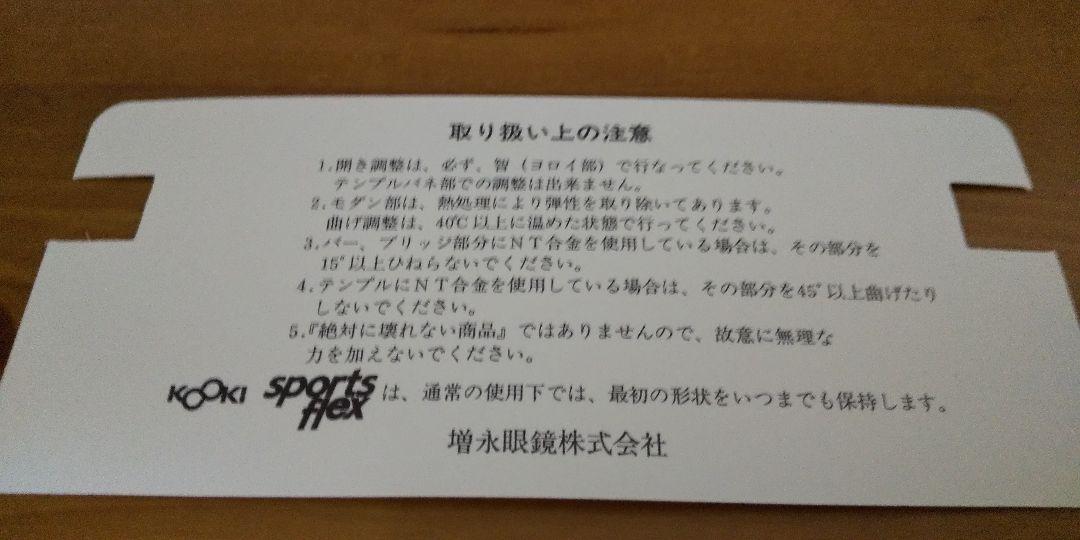 取り扱い上の注意
1.開き調整は、必ず、智（ヨロイ部）で行なってください。
テンプルバネ部での調整は出来ません。
2.モダン部は、熱処理により弾性を取り除いてあります。
曲げ調整は、40℃以上に温めた状態で行ってください。
3.バー、ブリッジ部分にＮＴ合金を使用している場合は、その部分を
15°以上ひねらないでください。
4.テンプルにＮＴ合金を使用している場合は、その部分を45°以上曲げたり
しないでください。
5.『絶対に壊れない商品』ではありませんので、故意に無理な
力を加えないでください。
KOOKI sports flex は、通常の使用下では、最初の形状をいつまでも保持します。
増永眼鏡株式会社